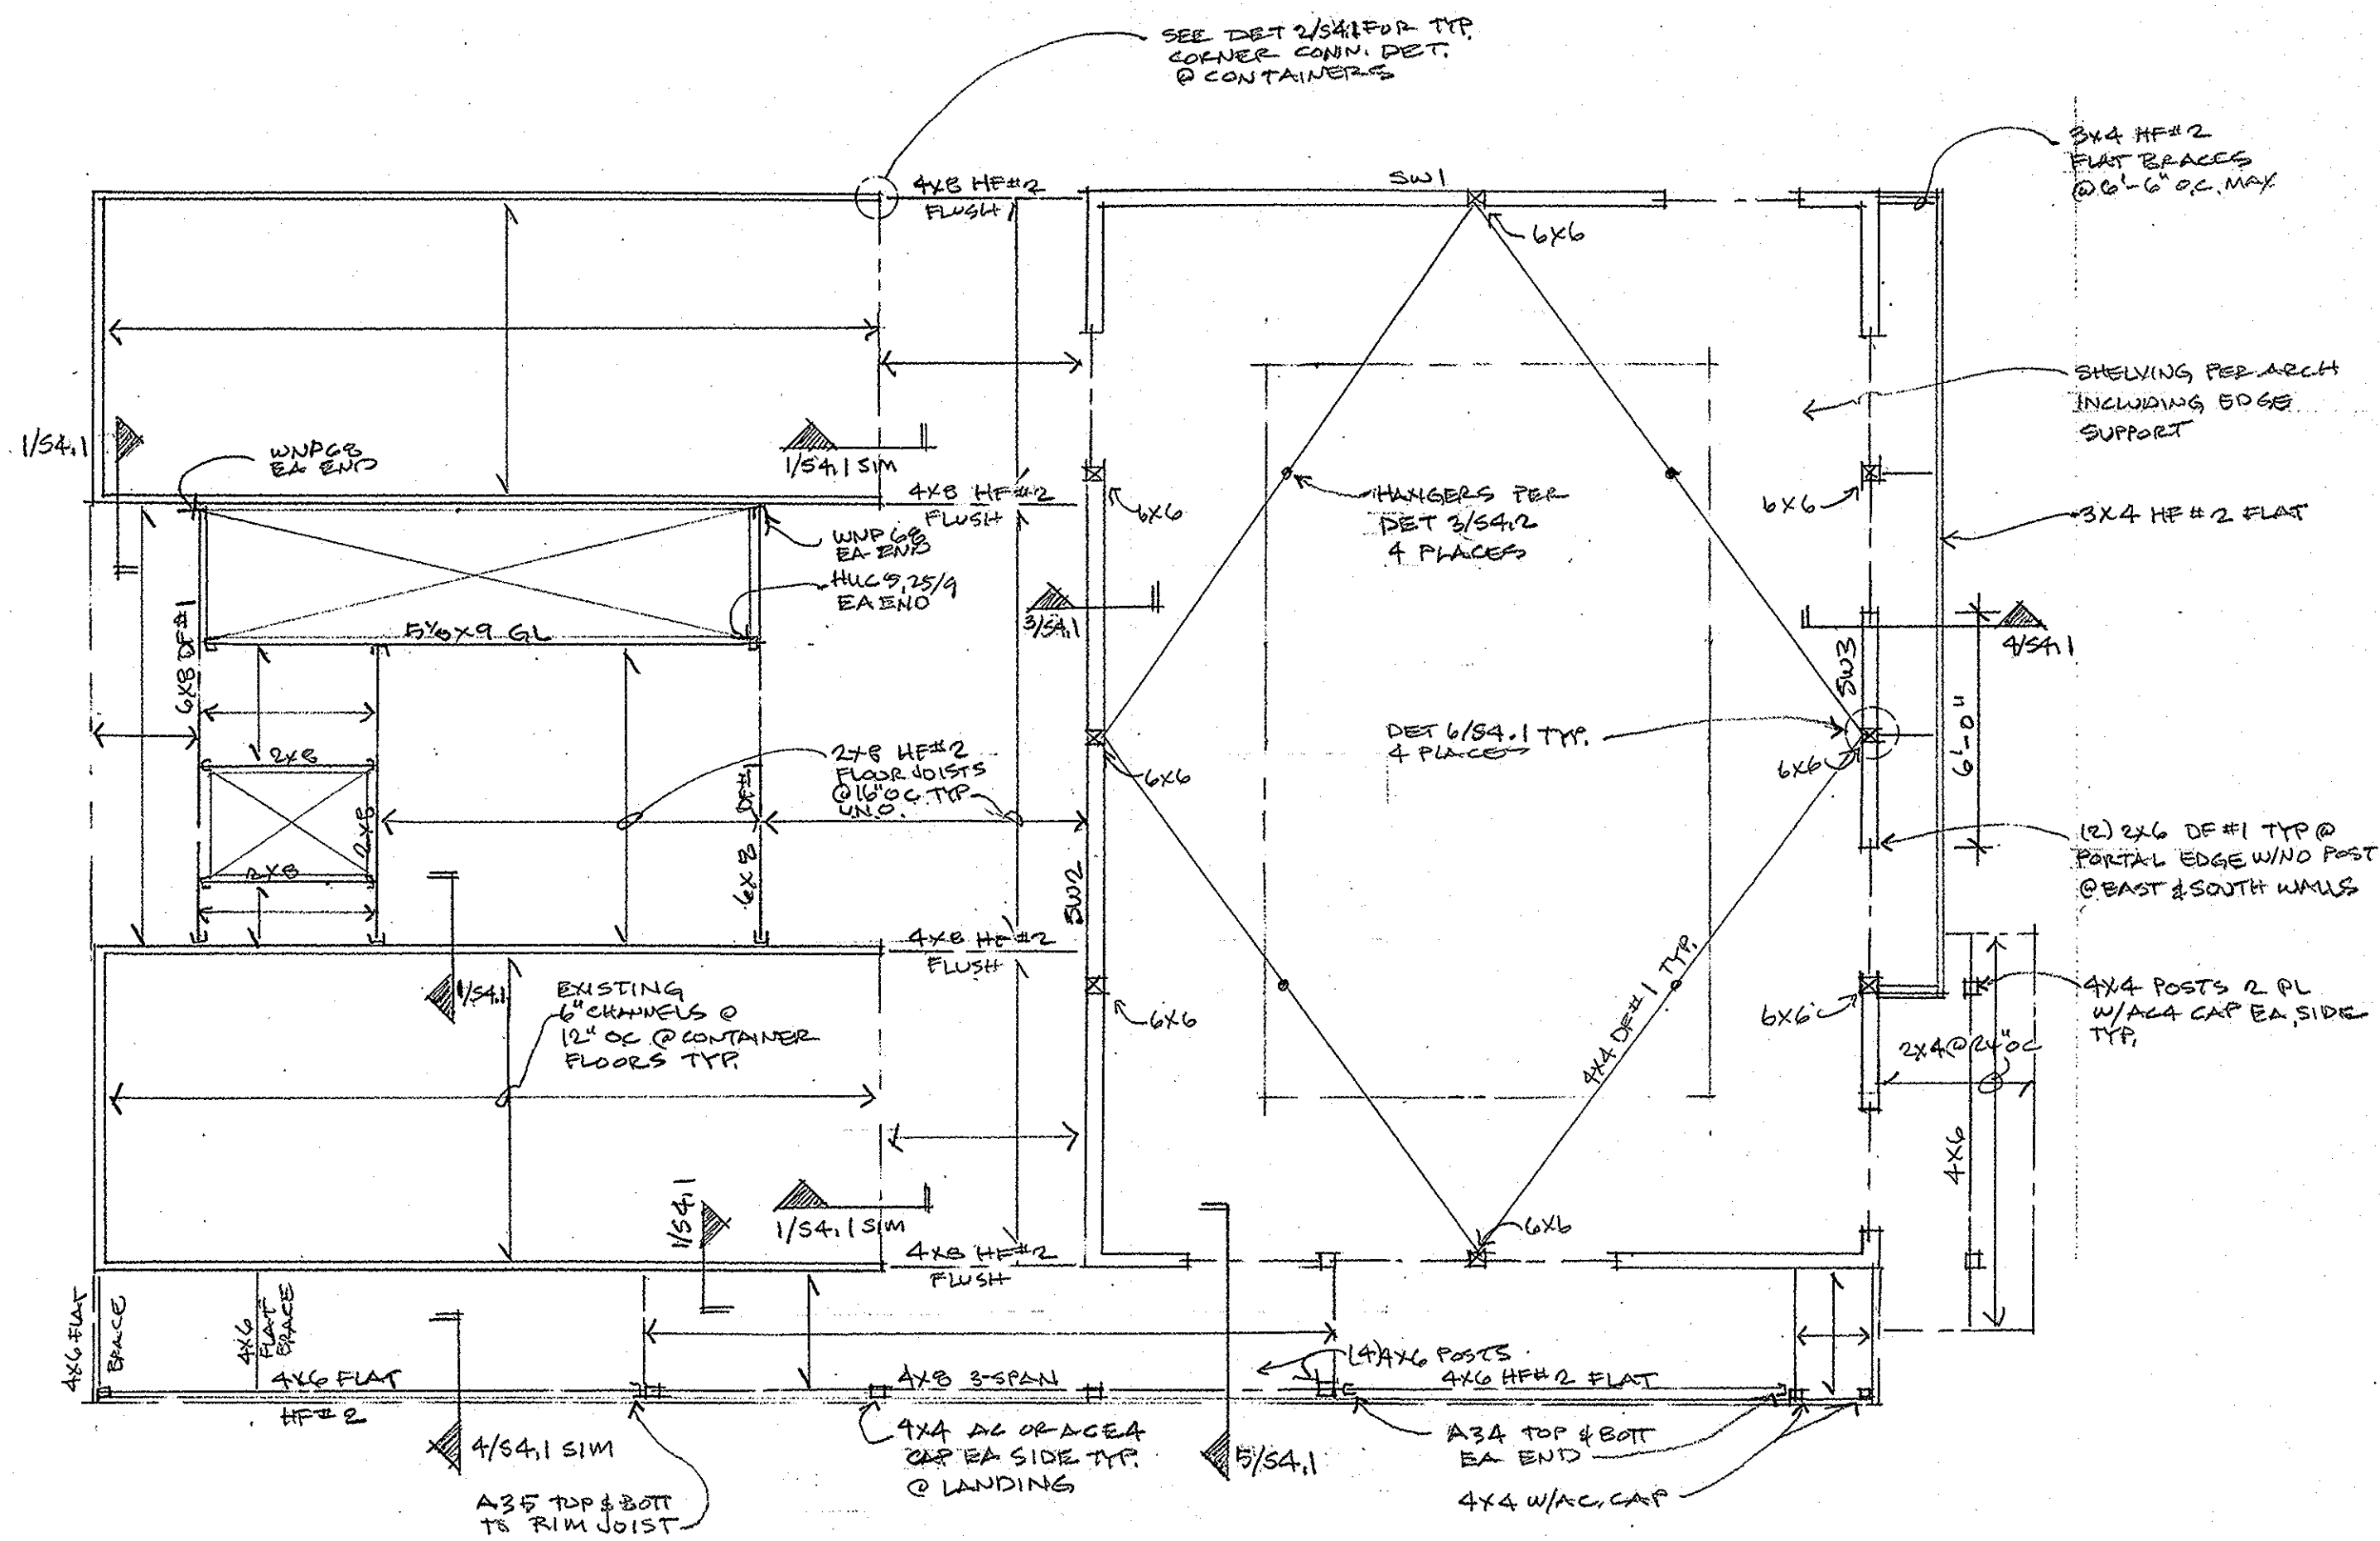 SEE DET 2/S4.1 FOR TYP.
CORNER CONN. DET.
@ CONTAINERS
3x4 HF#2
FLAT BRACES
@ 6'-6" O.C. MAX
4x8 HF#2
FLUSH
SW1
6x6
SHELVING PER ARCH
INCLUDING EDGE
SUPPORT
1/S4.1
WNP68
EA END
1/S4.1 SIM
4x8 HF#2
FLUSH
6x6
HANGERS PER
DET 3/S4.2
4 PLACES
6x6
3x4 HF #2 FLAT
WNP 68
EA END
HUC5.25/9
EA END
3/S4.1
5 1/8 x 9 GL
6x8 DF#1
SW3
4/S4.1
6'-0"
DET 6/S4.1 TYP.
4 PLACES
6x6
6x6
2x8
2x8
2x8
2x8 HF#2
FLOOR JOISTS
@ 16" OC TYP
U.N.O.
6x8 DF#1
SW2
(2) 2x6 DF #1 TYP @
PORTAL EDGE W/NO POST
@ EAST & SOUTH WALLS
4x8 HF#2
FLUSH
1/S4.1
EXISTING
6" CHANNELS @
12" OC @ CONTAINER
FLOORS TYP.
6x6
4x4 DF#1 TYP.
6x6
4x4 POSTS 2 PL
W/AC4 CAP EA. SIDE
TYP.
2x4 @ 24" OC
4x6
1/S4.1
1/S4.1 SIM
4x8 HF#2
FLUSH
6x6
4x6 FLAT
BRACE
4x6
FLAT
BRACE
4x6 FLAT
HF#2
4x8 3-SPAN
(4) 4x6 POSTS
4x6 HF#2 FLAT
4/S4.1 SIM
4x4 AC OR ACE4
CAP EA SIDE TYP.
@ LANDING
5/S4.1
A34 TOP & BOTT
EA END
4x4 W/AC. CAP
A35 TOP & BOTT
TO RIM JOIST